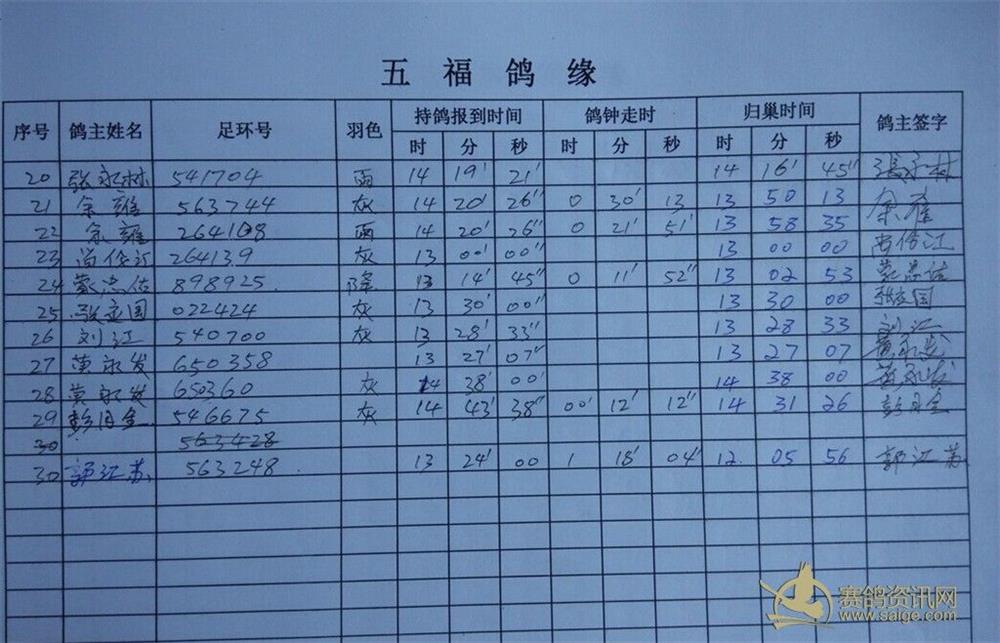 五福鸽缘
序号 鸽主姓名 足环号 羽色 持鸽报到时间 鸽钟走时 归巢时间 鸽主签字
时 分 秒 时 分 秒 时 分 秒
20 张永林 541704 雨 14 19' 21' 14 16' 45" 张永林
21 余雍 563744 灰 14 20' 26" 0 30' 13 13 50 13 余雍
22 余雍 264108 雨 14 20' 26" 0 21' 51' 13 58 35
23 264139 灰 13 00' 00" 13 00 00
24 898925. 13 14' 45" 0 11' 52" 13 02 53
25 022424 灰 13 30' 00" 13 30 00
26 刘江 540700 灰 13 28' 33" 13 28 33 刘江
27 黄永发 650358 13 27' 07" 13 27 07 黄永发
28 黄永发 650360 灰 14 38' 00' 14 38 00 黄永发
29 546675 灰 14 43' 38" 00' 12' 12" 14 31 26
30 563428
30 郭江苏 563248. 13 24' 00 1 18' 04' 12. 05 56 郭江苏
赛鸽资讯网
www.saige.com